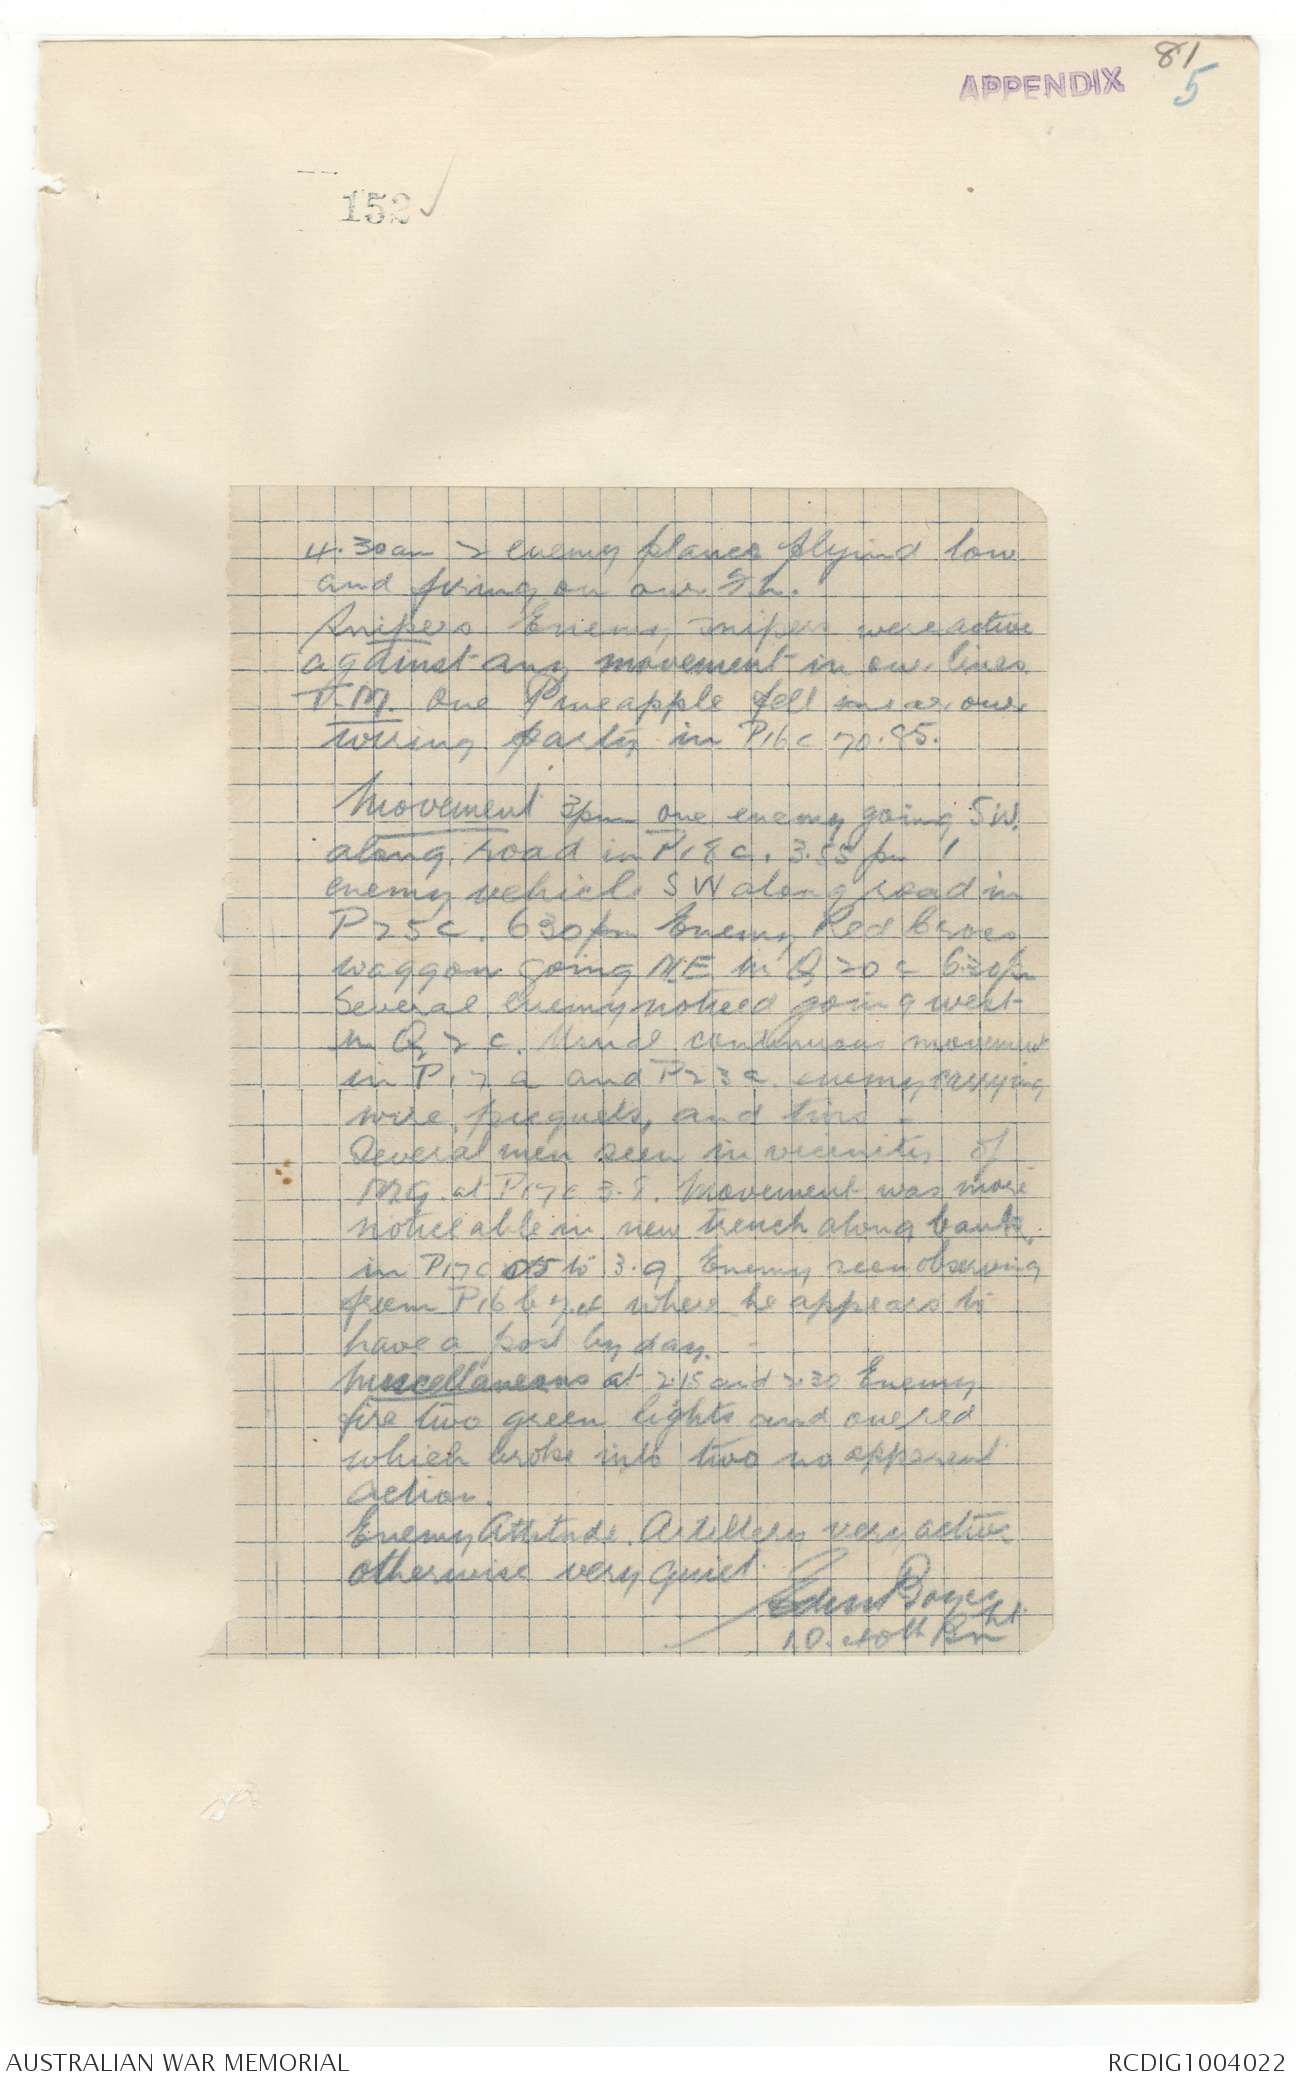 81
APPENDIX 5
152 ✓
4.30am 2 enemy planes flying low
and firing on our F.L.
Snipers Enemy snipers were active
against any movement in our lines
T.M. One Pineapple fell near our
wiring party in P16c 70.85.
Movement 3pm one enemy going SW.
along road in P18c. 3.55 pm 1
enemy vehicle SW along road in
P25c. 630pm Enemy Red Cross
waggon going NE in Q20c 6.30pm
Several enemy noticed going west
in Q2c. Usual continuous movement
in P17a and P23a enemy carrying
wire, picquets, and tins -
Several men seen in vicinity of
M.G. at P17c 3.8. Movement was more
noticeable in new trench along bank
in P17c 05 to 3.9. Enemy seen observing
from P16b where he appears to
have a post by day. -
Miscellaneous at 2.15 and 2.30 Enemy
fire two green lights and one red
which broke into two no apparent
action.
Enemy Attitude. Artillery very active
otherwise very quiet.
Lt.
I.O. 40th Bn
AUSTRALIAN WAR MEMORIAL
RCDIG1004022